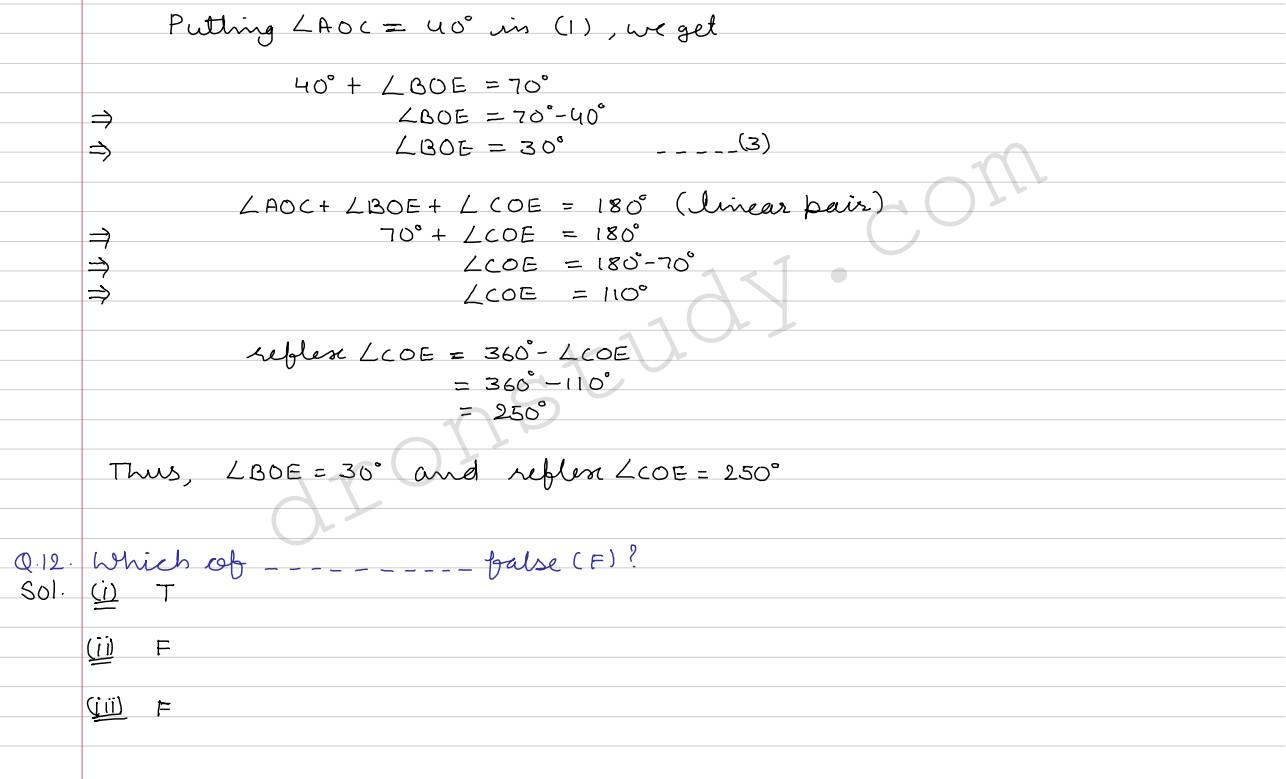 Putting ∠AOC = 40° in (1), we get
40° + ∠BOE = 70°
⇒ ∠BOE = 70° - 40°
⇒ ∠BOE = 30° -----(3)
∠AOC + ∠BOE + ∠COE = 180° (linear pair)
⇒ 70° + ∠COE = 180°
⇒ ∠COE = 180° - 70°
⇒ ∠COE = 110°
reflex ∠COE = 360° - ∠COE
= 360° - 110°
= 250°
Thus, ∠BOE = 30° and reflex ∠COE = 250°
Q.12. Which of ----------- false (F)?
Sol. (i) T
(ii) F
(iii) F
dronstudy.com